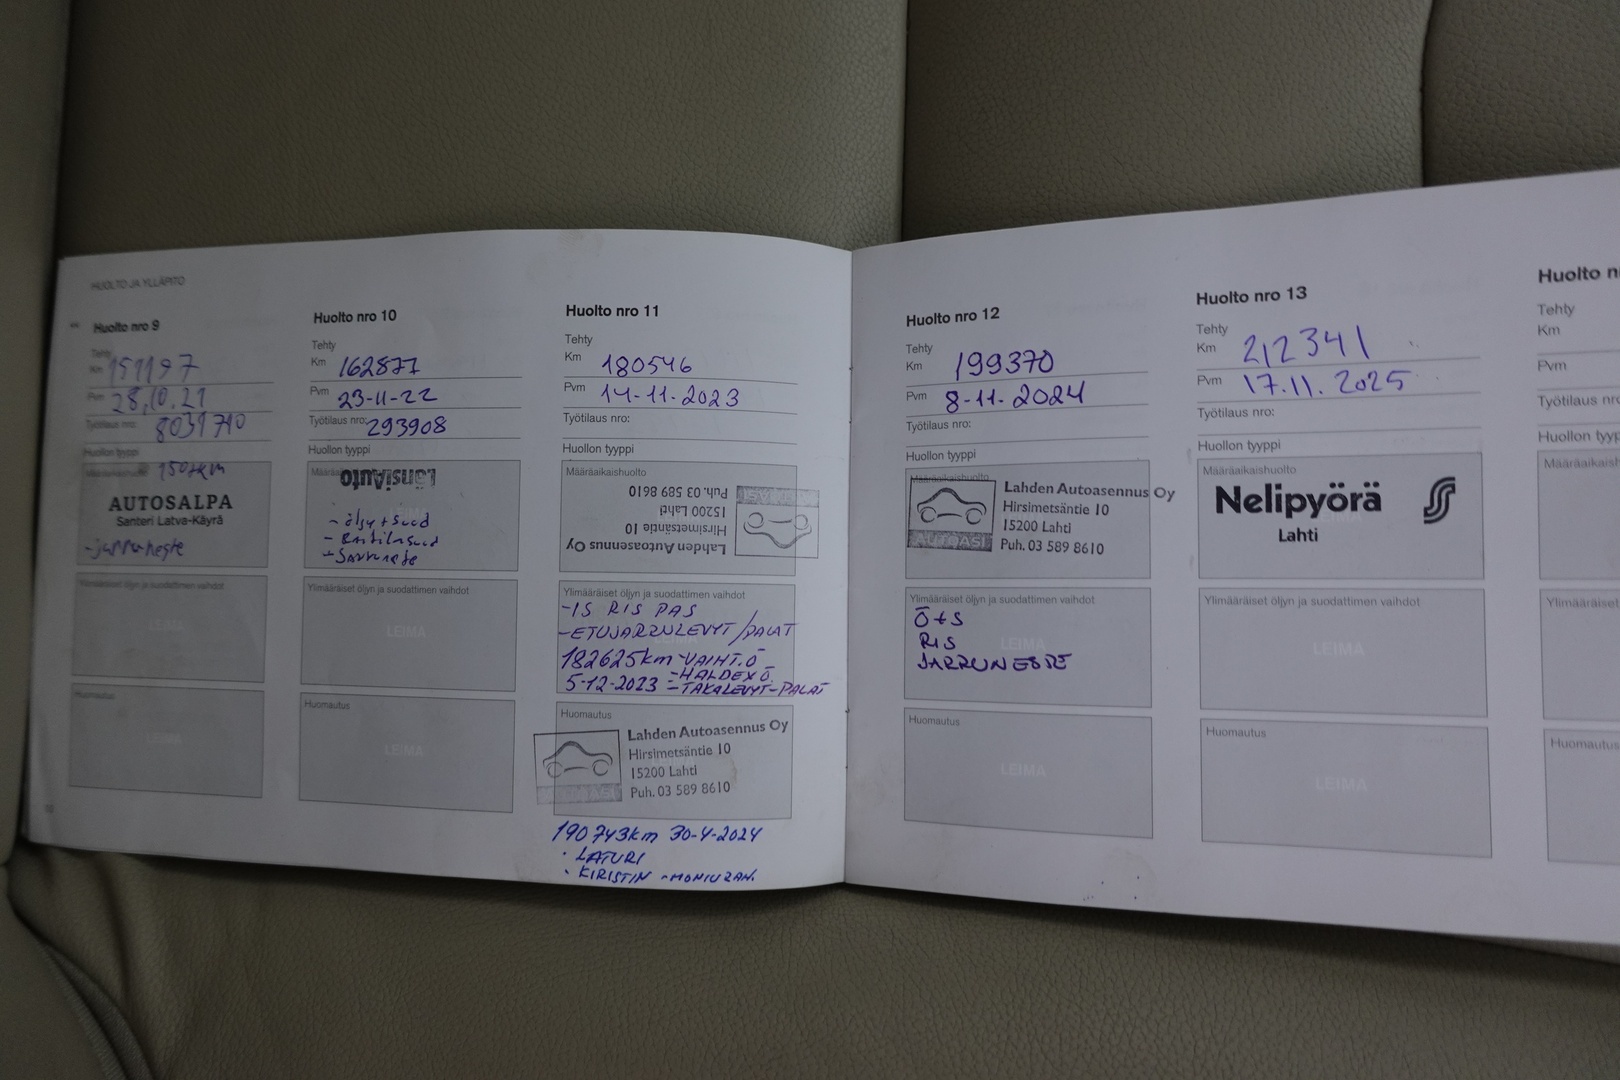 HUOLTO JA YLLÄPITO
Huolto nro 9
Tehty
Km 151197
Pvm 28.10.21
Työtilaus nro: 8031710
Huollon tyyppi
Määräaikaishuolto 150tkm
AUTOSALPA
Santeri Latva-Käyrä
-jarruneste
Ylimääräiset öljyn ja suodattimen vaihdot
LEIMA
Huomautus
LEIMA
Huolto nro 10
Tehty
Km 162871
Pvm 23-11-22
Työtilaus nro: 293908
Huollon tyyppi
LänsiAuto
- öljy + suod
- Raitilmasuod
- Jarruneste
Ylimääräiset öljyn ja suodattimen vaihdot
LEIMA
Huomautus
LEIMA
Huolto nro 11
Tehty
Km 180546
Pvm 14-11-2023
Työtilaus nro:
Huollon tyyppi
Määräaikaishuolto
Lahden Autoasennus Oy
Hirsimetsäntie 10
15200 Lahti
Puh. 03 589 8610
AUTOASI
Ylimääräiset öljyn ja suodattimen vaihdot
-IS RIS PAS
-ETUJARRULEVYT/PALAT
182625km -VAIHT.Ö
-HALDEX Ö.
5-12-2023 -TAKALEVYT-PALAT
Huomautus
Lahden Autoasennus Oy
Hirsimetsäntie 10
15200 Lahti
Puh. 03 589 8610
AUTOASI
190743km 30-4-2024
· LATURI
· KIRISTIN -MONIURAH.
Huolto nro 12
Tehty
Km 199370
Pvm 8-11-2024
Työtilaus nro:
Huollon tyyppi
Määräaikaishuolto
Lahden Autoasennus Oy
Hirsimetsäntie 10
15200 Lahti
Puh. 03 589 8610
AUTOASI
Ylimääräiset öljyn ja suodattimen vaihdot
Ö+S
RIS
JARRUNESTE
LEIMA
Huomautus
LEIMA
Huolto nro 13
Tehty
Km 212341
Pvm 17.11.2025
Työtilaus nro:
Huollon tyyppi
Määräaikaishuolto
Nelipyörä
Lahti
Ylimääräiset öljyn ja suodattimen vaihdot
LEIMA
Huomautus
LEIMA
Huolto
Tehty
Km
Pvm
Työtilaus
Huollon
Ylimääräiset
Huomautus